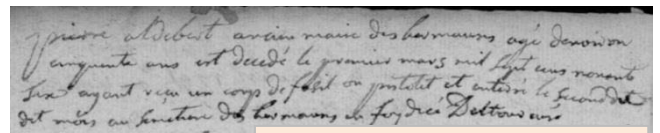 pierre aldebert ancien maire des hermaunes agé denviron
cinquante ans est decedé le premier mars mil sept cens nonante
six ayant reçu un corps de fusil ou pistolet et enterré le second dud
dit mois au simetiere des hermaunes en foy de ce